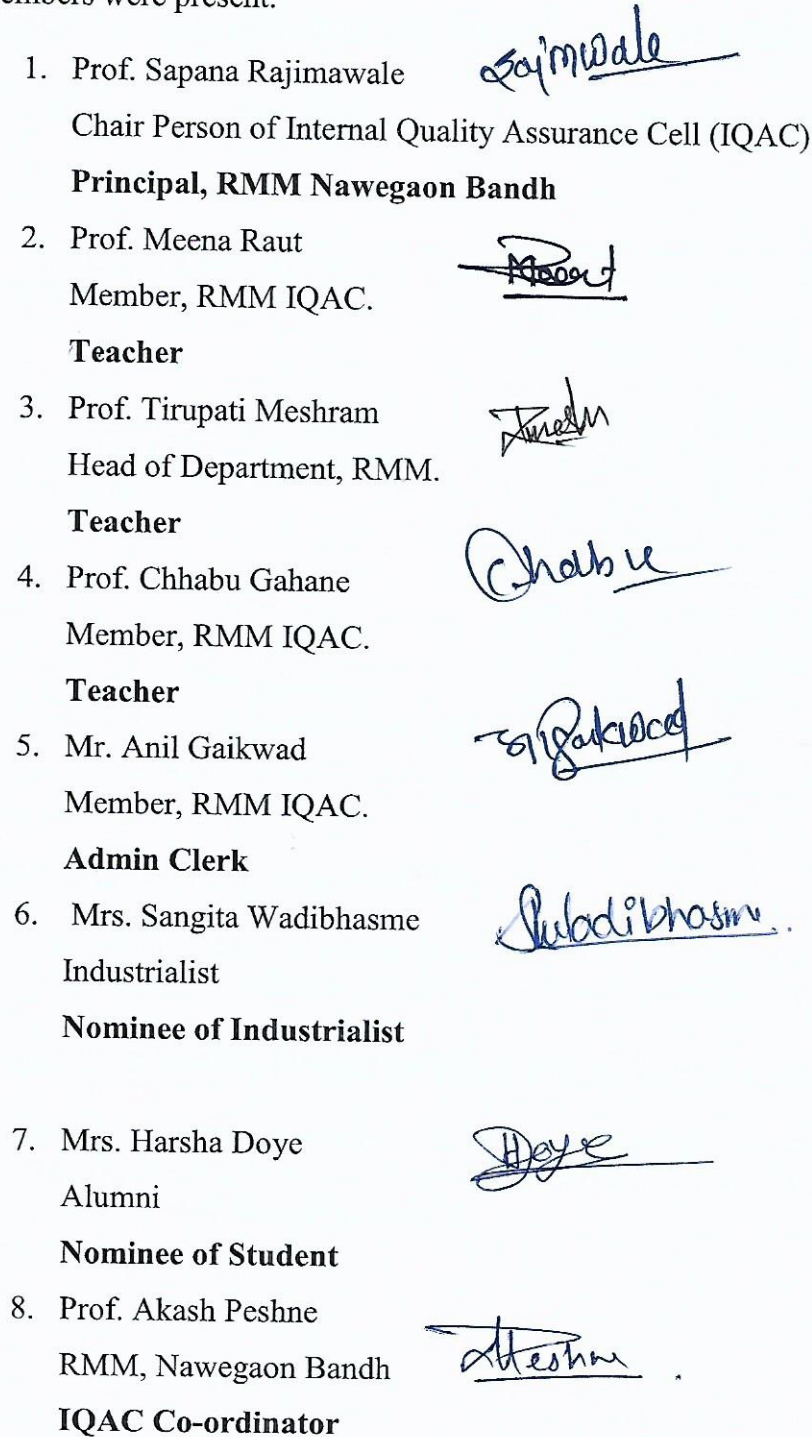 were present.
1. Prof. Sapana Rajimawale
Chair Person of Internal Quality Assurance Cell (IQAC)
Principal, RMM Nawegaon Bandh
2. Prof. Meena Raut
Member, RMM IQAC.
Teacher
3. Prof. Tirupati Meshram
Head of Department, RMM.
Teacher
4. Prof. Chhabu Gahane
Member, RMM IQAC.
Teacher
5. Mr. Anil Gaikwad
Member, RMM IQAC.
Admin Clerk
6. Mrs. Sangita Wadibhasme
Industrialist
Nominee of Industrialist
7. Mrs. Harsha Doye Doye
Alumni
Nominee of Student
8. Prof. Akash Peshne
RMM, Nawegaon Bandh
IQAC Co-ordinator